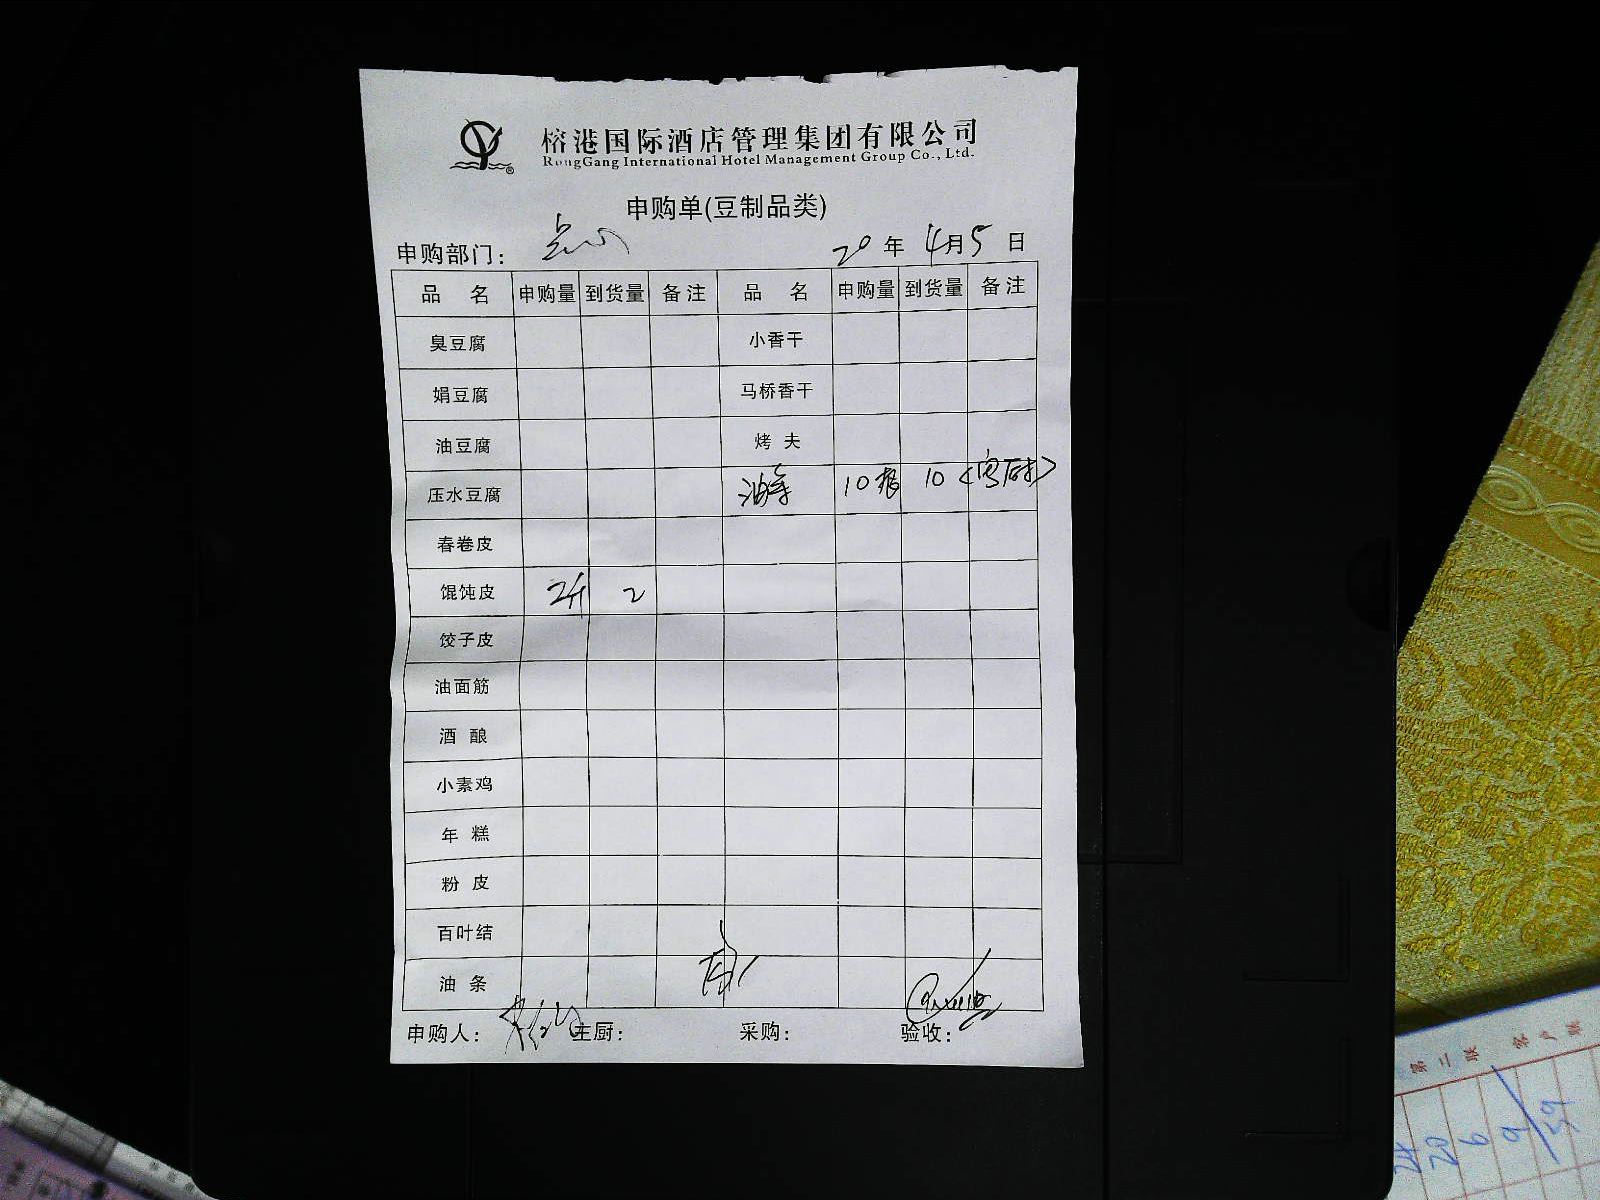 榕港国际酒店管理集团有限公司
RongGang International Hotel Management Group Co., Ltd.
申购单(豆制品类)
申购部门： 点心 20年4月5日
品 名 申购量 到货量 备注 品 名 申购量 到货量 备注
臭豆腐 小香干
娟豆腐 马桥香干
油豆腐 烤 夫
压水豆腐 油条 10根 10
春卷皮
馄饨皮 2斤 2
饺子皮
油面筋
酒 酿
小素鸡
年 糕
粉 皮
百叶结
油 条
申购人： 主厨： 采购： 验收：
第二联 客户联
20
6
9
59